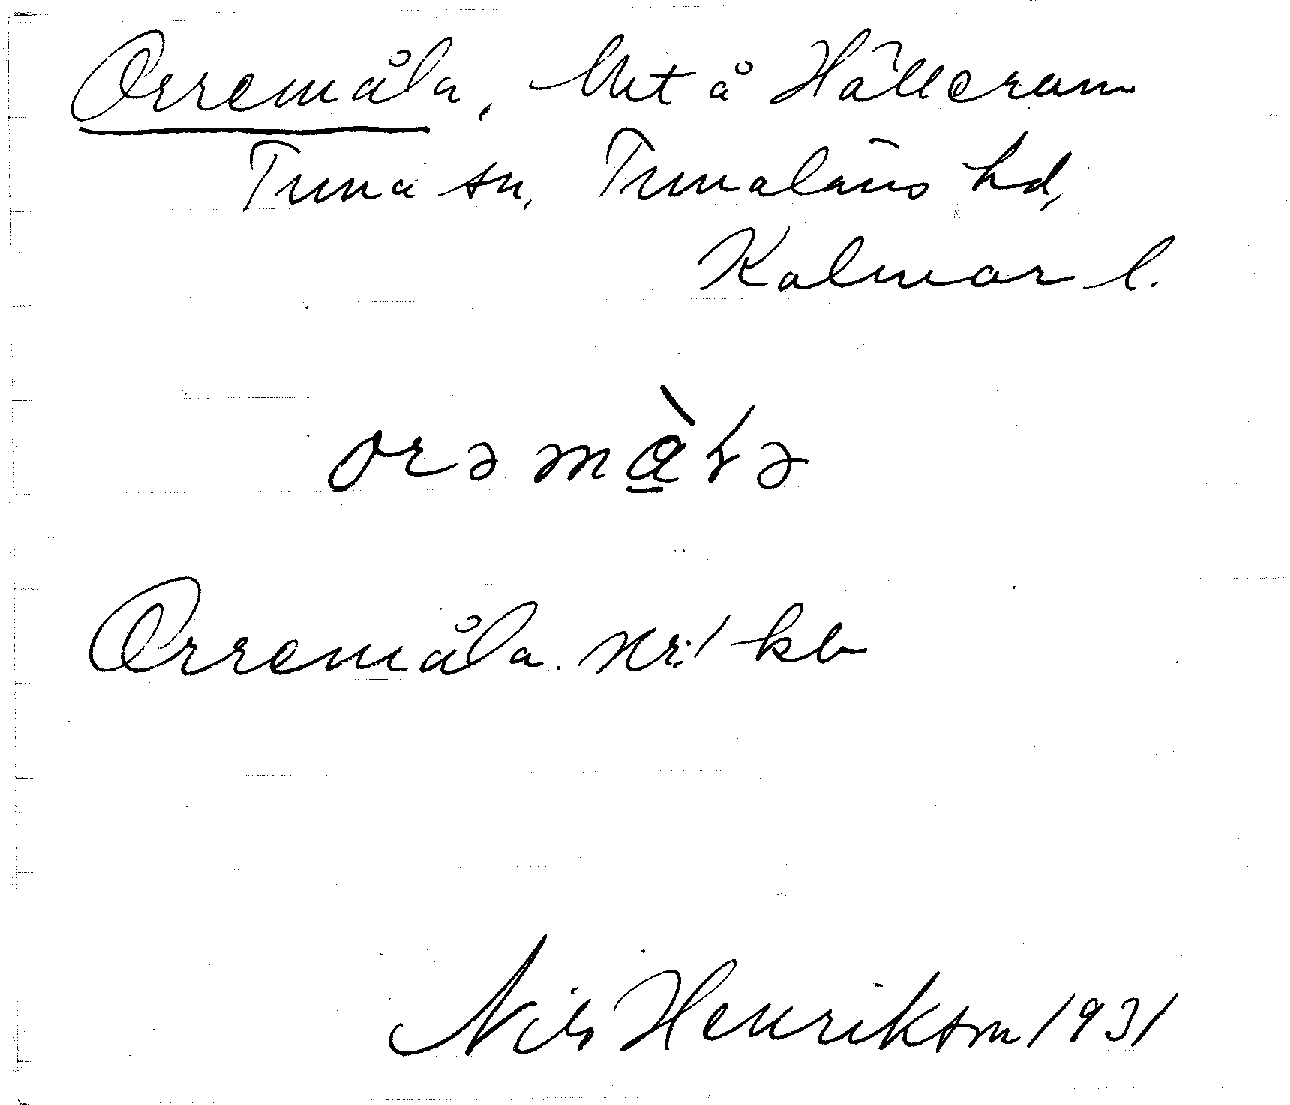 Orremåla, Utt å Hälleram
Tuna sn, Tunaläns hd,
Kalmar l.
orəmàlə
Orremåla. nr:1 kb
Nils Henrikson 1931